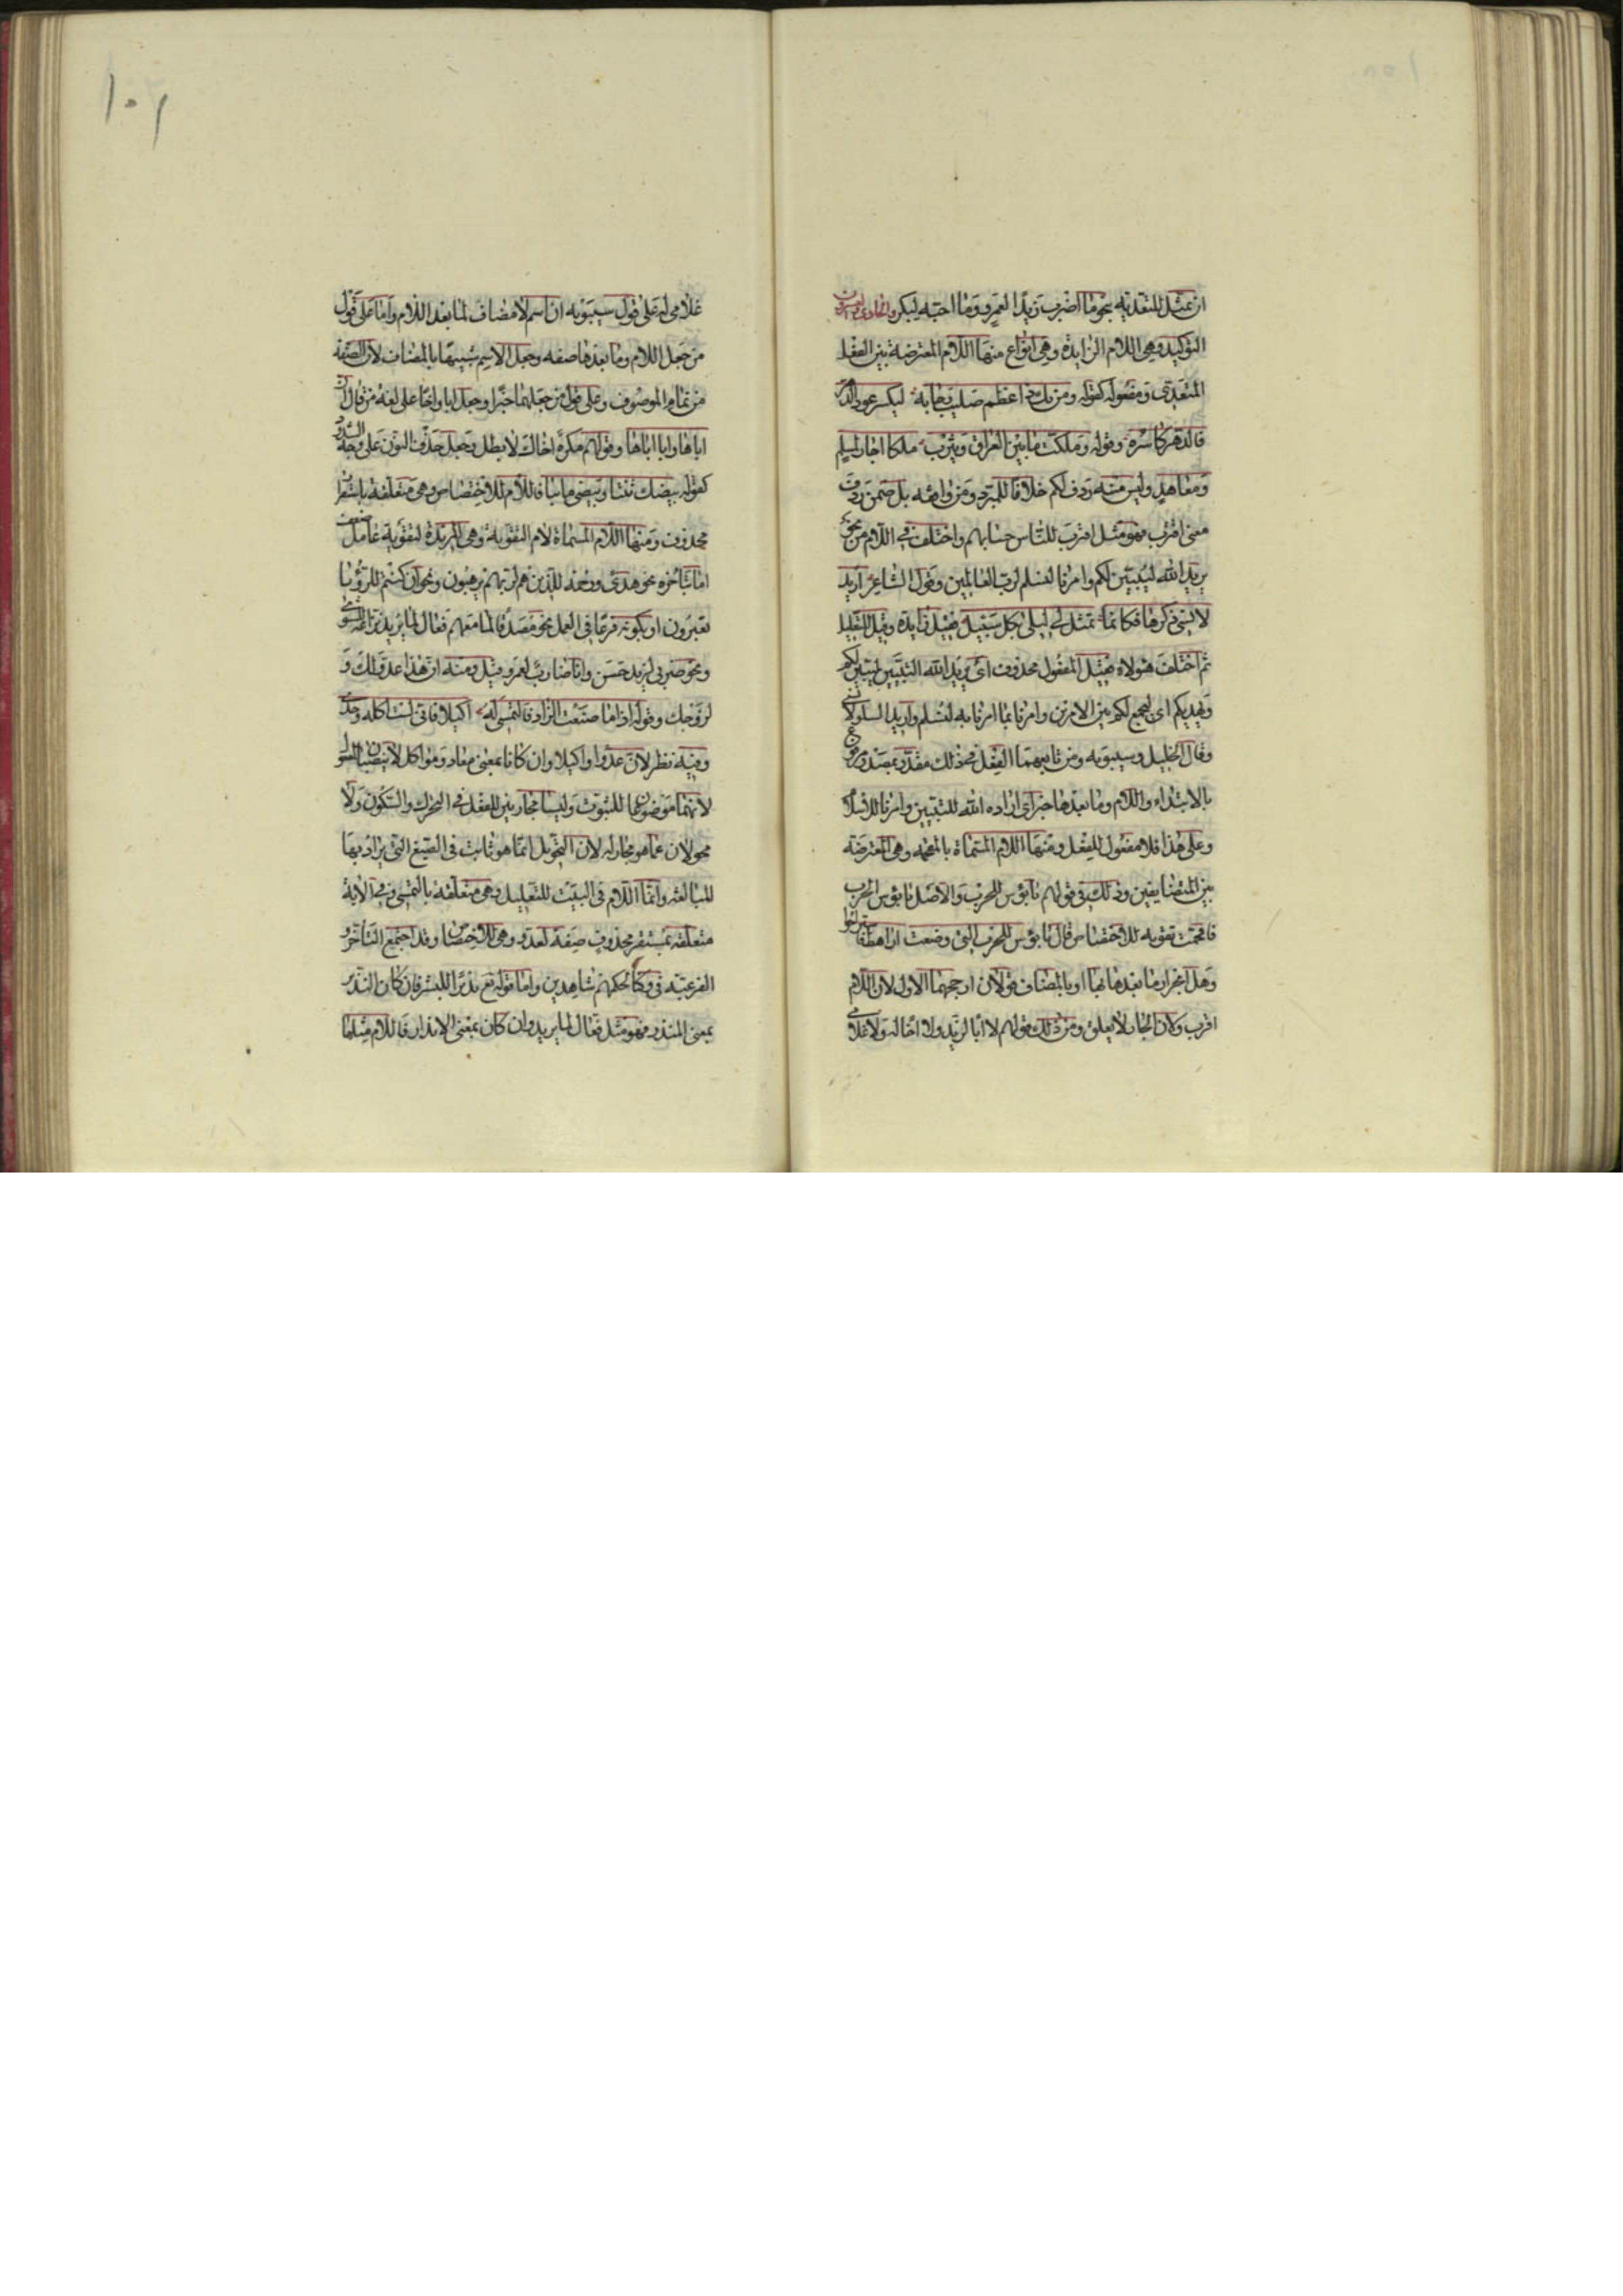 ان يمثل للتعدية بنحو ما اضرب زيدا لعمرو وما احبه لبكر والحادى والعشرون
التوكيد وهى اللام الزايدة وهى انواع منها اللام المعترضة بين الفعل
المتعدى ومفعوله كقوله ومن يك ذا عظم صليب رجا به ليكسر عود الدهر
فالدهر كاسره وقوله وملكت ما بين العراق ويثرب ملكا اجار لمسلم
ومعاهد وليس منه ردف لكم خلافا للمبرد ومن وافقه بل ضمن ردف
معنى اقترب فهو مثل اقترب للناس حسابهم واختلف فى اللام من نحو
يريد الله ليبين لكم وامرنا لنسلم لرب العالمين وقول الشاعر اريد
لانسى ذكرها فكانما تمثل لى ليلى بكل سبيل فقيل زايدة وقيل للتعليل
ثم اختلف هولاء فقيل المفعول محذوف اى يريد الله التبيين ليبين لكم
ويهديكم اى ليجمع لكم بين الامرين وامرنا بما امرنا به لنسلم واريد السلو لانسى
وقال الخليل وسيبويه ومن تابعهما الفعل فى ذلك مقدر بمصدر مرفوع
بالابتداء واللام وما بعدها خبر اى ارادة الله للتبيين وامرنا للاسلام
وعلى هذا فلا مفعول للفعل ومنها اللام المسماة بالمقحمة وهى المعترضة
بين المتضايفين وذلك فى قولهم يا بؤس للحرب والاصل يا بؤس الحرب
فاقحمت تقوية للاختصاص قال يا بؤس للحرب التى وضعت اراهط فاستراحوا
وهل انجرار ما بعدها بها او بالمضاف قولان ارجحهما الاول لان اللام
اقرب ولان الجار لا يعلق ومن ذلك قولهم لا ابا لزيد ولا اخا له ولا غلامى
غلامى له على قول سيبويه ان اسم لا مضاف لما بعد اللام واما على قول
من جعل اللام وما بعدها صفة وجعل الاسم شبيها بالمضاف لان الصفة
من تمام الموصوف وعلى قول من جعلهما خبرا وجعل ابا واخا على لغة من قال ان
اباها وابا اباها وقولهم مكره اخاك لا بطل وجعل حذف النون على وجه الشذوذ
كقوله بيضك ثنتا وبيضى مايتا فاللام للاختصاص وهى متعلقة باستقرار
محذوف ومنها اللام المسماة لام التقوية وهى المزيدة لتقوية عامل ضعف
اما بتاخره نحو هدى ورحمة للذين هم لربهم يرهبون ونحو ان كنتم للرؤيا
تعبرون او بكونه فرعا فى العمل نحو مصدقا لما معهم فعال لما يريد نزاعة للشوى
ونحو ضربى لزيد حسن وانا ضارب لعمرو قيل ومنه ان هذا عدو لك و
لزوجك وقوله اذا ما صنعت الزاد فالتمسى له اكيلا فانى لست آكله وحدى
وفيه نظر لان عدوا واكيلا وان كانا بمعنى معاد ومواكل لا ينصبان المفعول
لانهما موضوعان للثبوت وليسا مجاريين للفعل فى التحرك والسكون ولا
محولان عما هو مجار له لان التحويل انما هو ثابت فى الصيغ التى يراد بها
المبالغة وانما اللام فى البيت للتعليل وهى متعلقة بالتمسى وفى الآية
متعلقة بمستقر محذوف صفة لعدو وهى للاختصاص وقد اجتمع التأخر و
الفرعية فى وكنا لحكمهم شاهدين واما قوله تع نذيرا للبشر فان كان النذير
بمعنى المنذر فهو مثل فعال لما يريد وان كان بمعنى الانذار فاللام مثلها
١٠٢